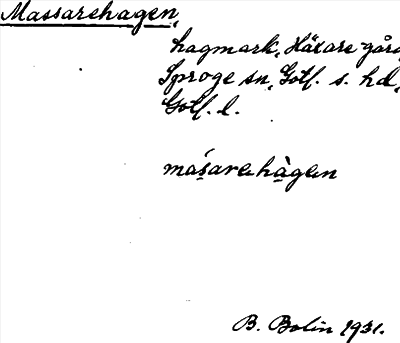 Massarehagen,
hagmark, Häxare gård
Sproge sn, Gotl. s. hd,
Gotl. l.
másarehàgen
B. Bolin 1931.